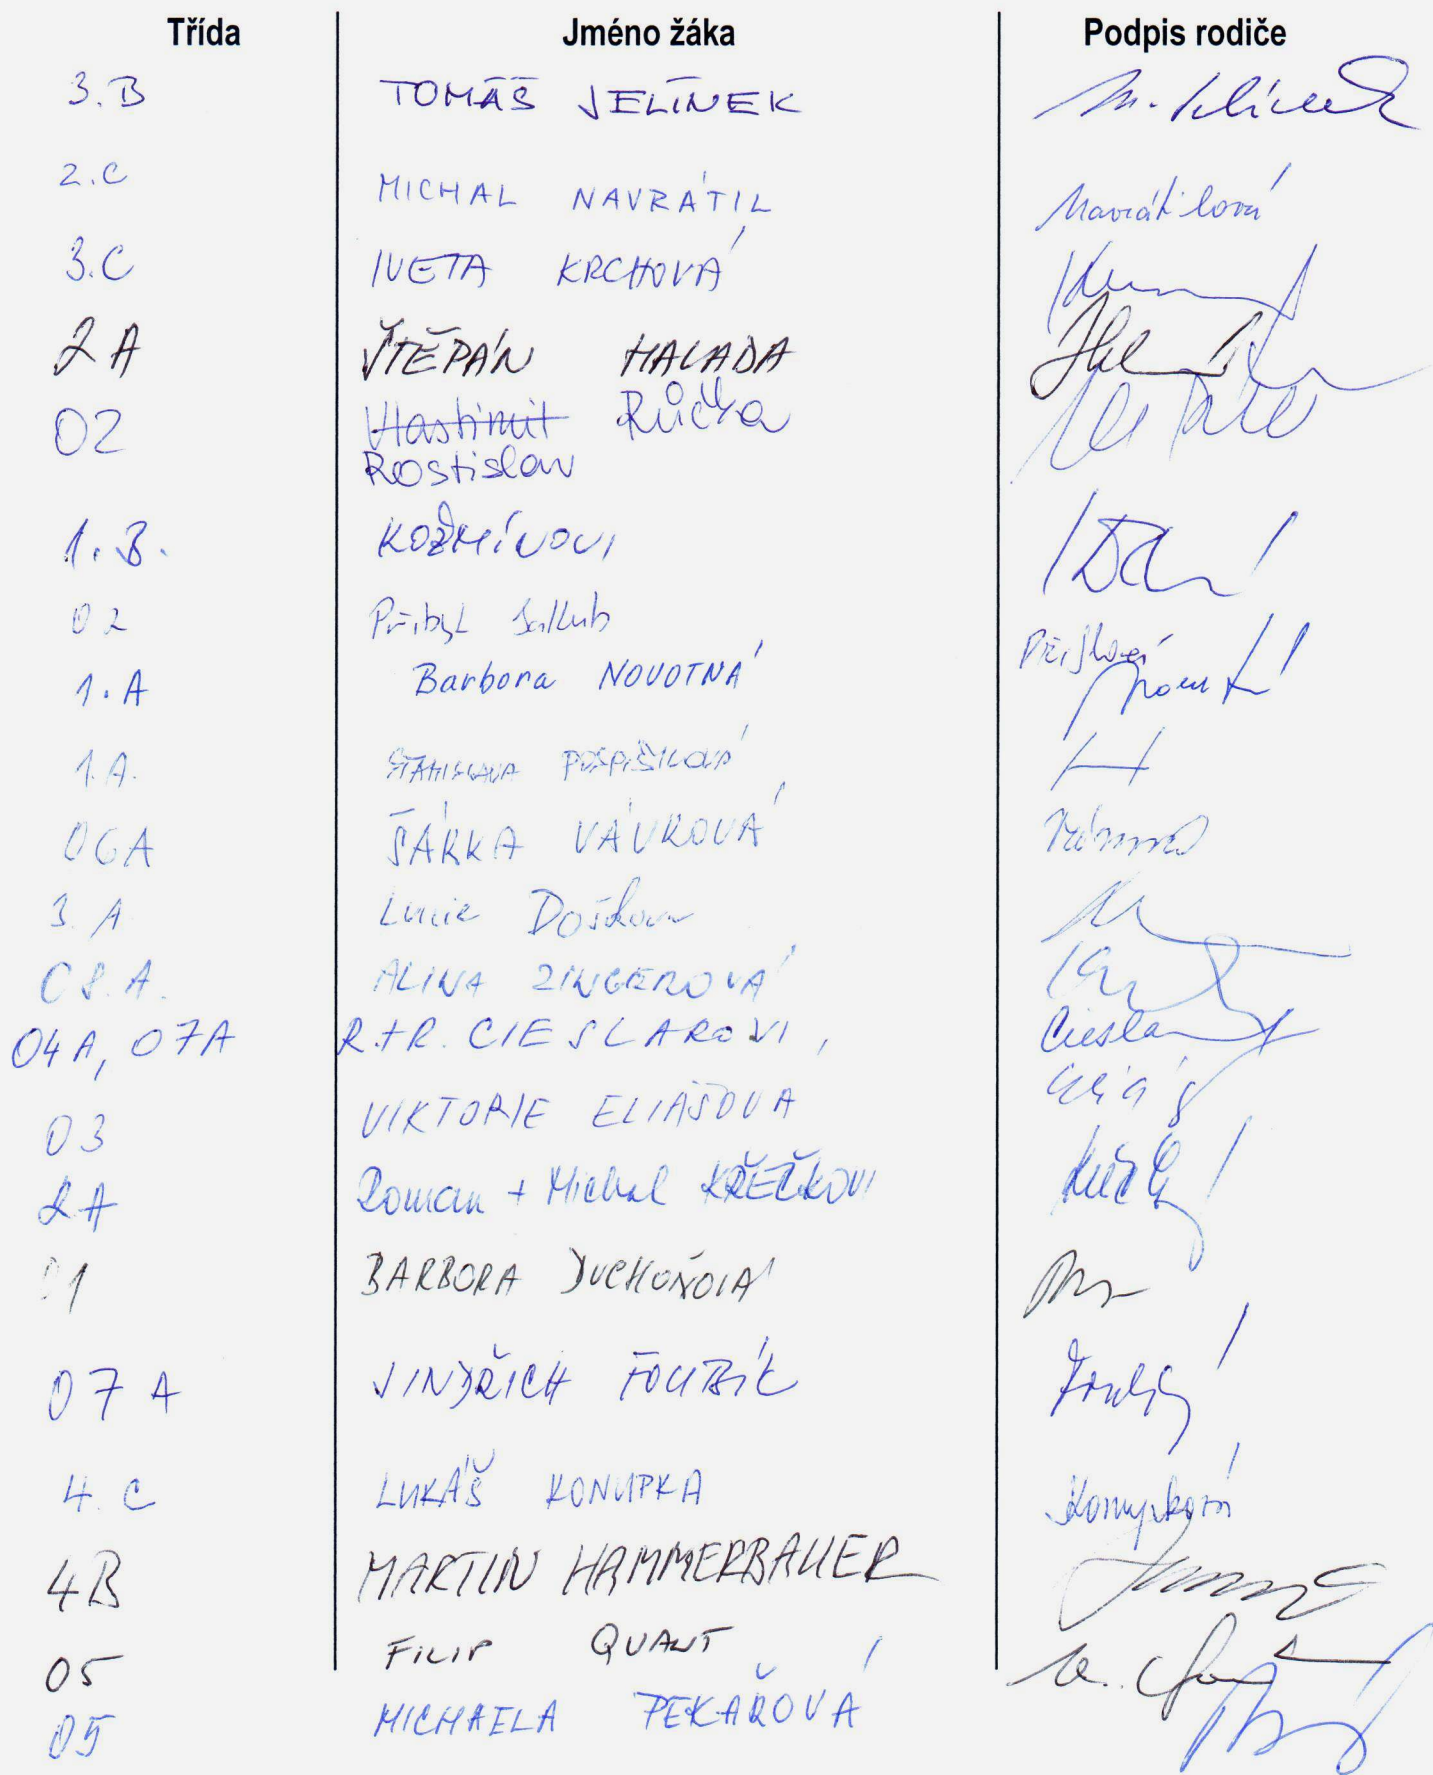 Třída Jméno žáka Podpis rodiče
3.B TOMÁŠ JELÍNEK
2.C MICHAL NAVRÁTIL Navrátilová
3.C IVETA KRCHOVÁ
2A ŠTĚPÁN HALADA
02 Vlastimil Růčka
Rostislav
1.B. KOŽMÍNOVI
02 Přibyl Jakub
1.A Barbora NOVOTNÁ
1.A. STANISLAVA POSPÍŠILOVÁ
06A ŠÁRKA VÁVROVÁ
3.A Lucie Došková
08.A. ALINA ZINGEROVÁ
04A, 07A R.+R. CIESLAROVI, Cieslar
03 VIKTORIE ELIÁŠOVA Eliáš
2A Roman + Michal KŘEČKOVI
01 BARBORA DUCHOŇOVÁ
07 A JINDŘICH FOUBÍK
4.C LUKÁŠ KONUPKA Konupková
4B MARTIN HAMMERBAUER
05 FILIP QUANT
05 MICHAELA PEKAŘOVÁ